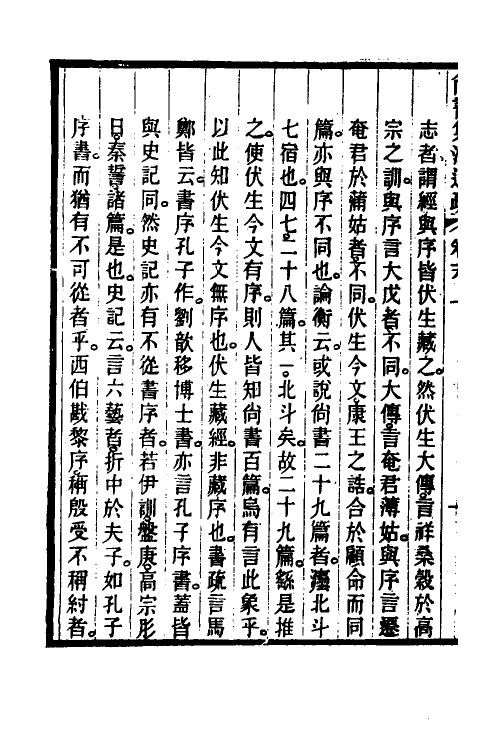 志者謂經與序皆伏生藏之。然伏生大傳言祥桑穀於高
宗之訓。與序言大戊者不同。大傳言奄君薄姑。與序言遷
奄君於蒲姑者不同。伏生今文康王之誥。合於顧命而同
篇。亦與序不同也。論衡云。或說尚書二十九篇者。灋北斗
七宿也。四七二十八篇。其一北斗矣。故二十九篇。繇是推
之。使伏生今文有序。則人皆知尙書百篇。烏有言此象乎。
以此知伏生今文無序也。伏生藏經。非藏序也。書疏言馬
鄭皆云。書序孔子作。劉歆移博士書。亦言孔子序書。蓋皆
與史記同。然史記亦有不從書序者。若伊訓盤庚高宗肜
日秦誓諸篇是也。史記云。言六藝者。折中於夫子。如孔子
序書。而猶有不可從者乎。西伯戡黎序。稱殷受不稱紂者。